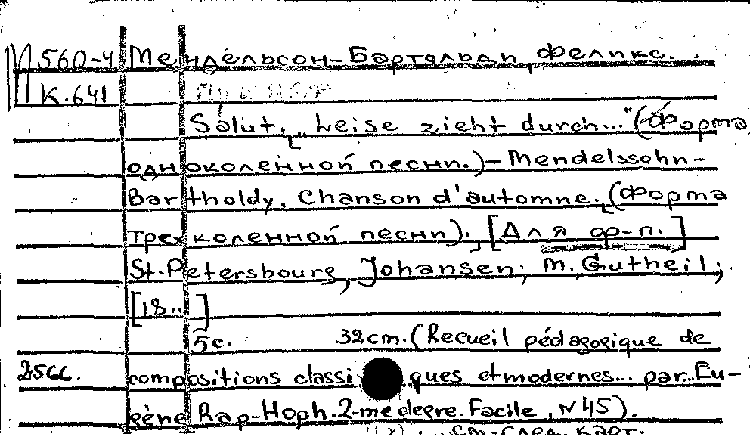 М560-4 Мендельсон-Бартольди, Феликс.
К.641
Salut. „Leise zieht durch..." (Форма
одноколенной песни.) - Mendelssohn-
Bartholdy. Chanson d'automne. (Форма
трехколенной песни). [Для ф-п.]
St.Petersbourg, Johansen; M. Gutheil;
[18..]
5c. 32cm. (Recueil pédagogique de
256с. compositions classiques et modernes... par Eu-
gène Rap-Hoph. 2-me degre. Facile, N45).
см. след. карт.